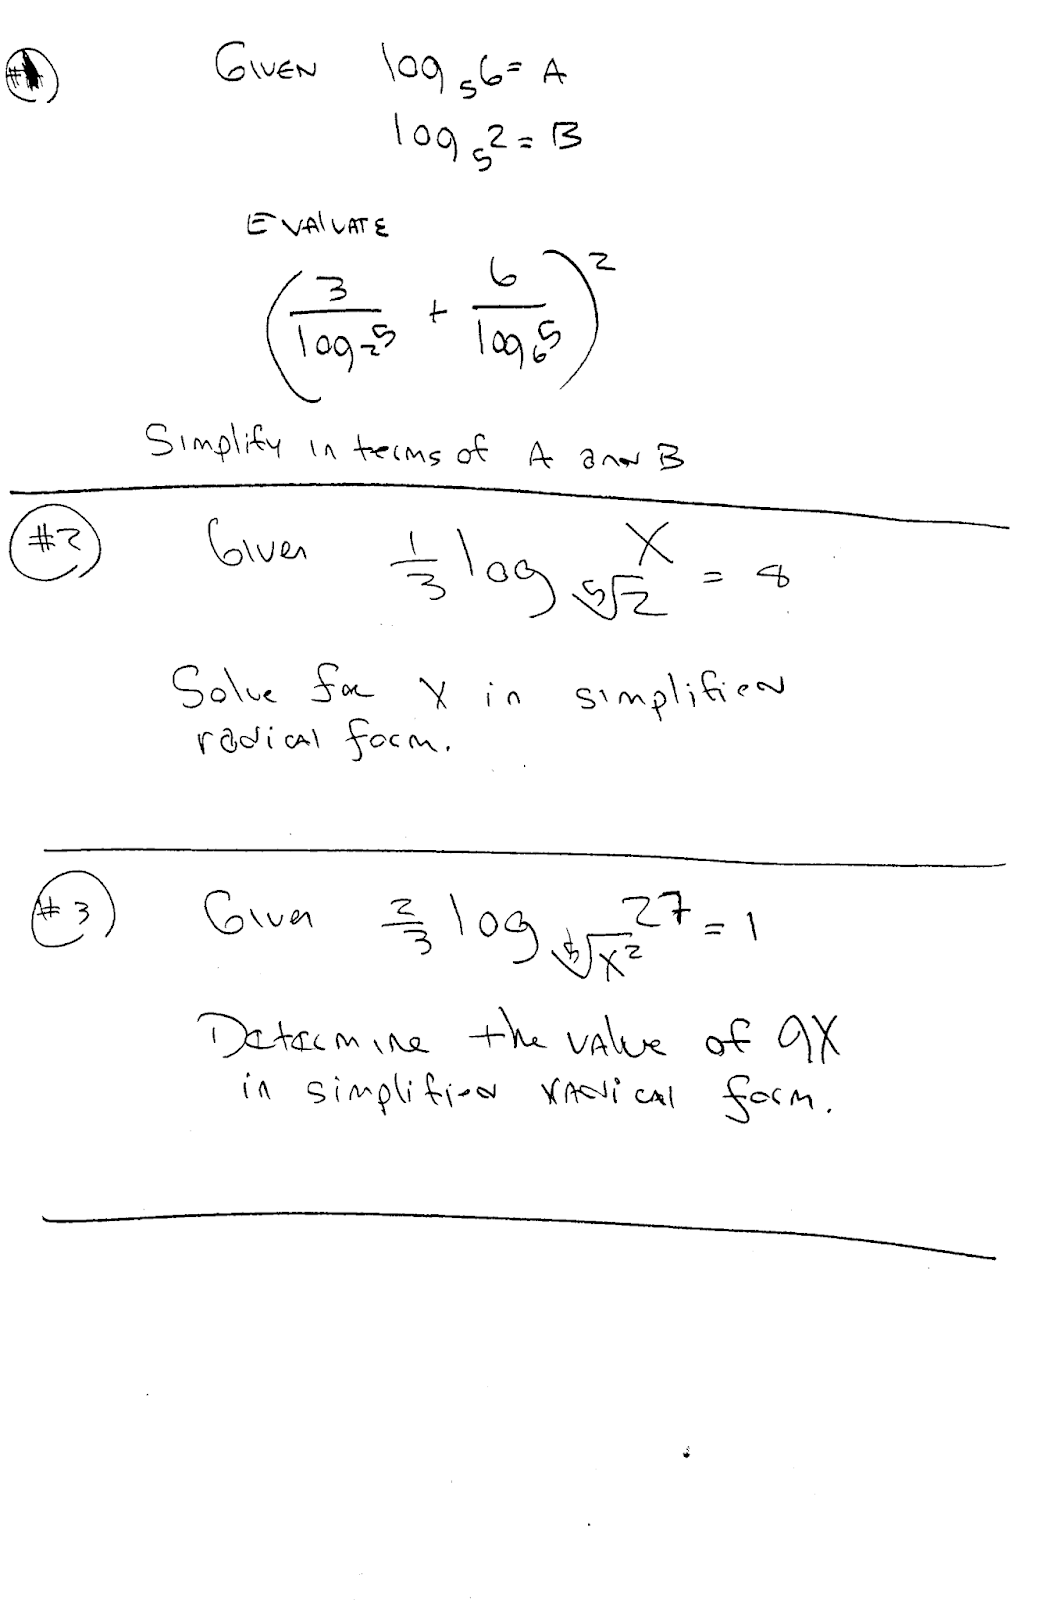 #1 GIVEN log₅6 = A
log₅2 = B
EVALUATE
(3/log₂5 + 6/log₆5)²
Simplify in terms of A and B
#2 Given 1/3 log_{⁵√2} X = 8
Solve for X in simplified
radical form.
#3 Given 2/3 log_{√x²} 27 = 1
Determine the value of 9X
in simplified radical form.